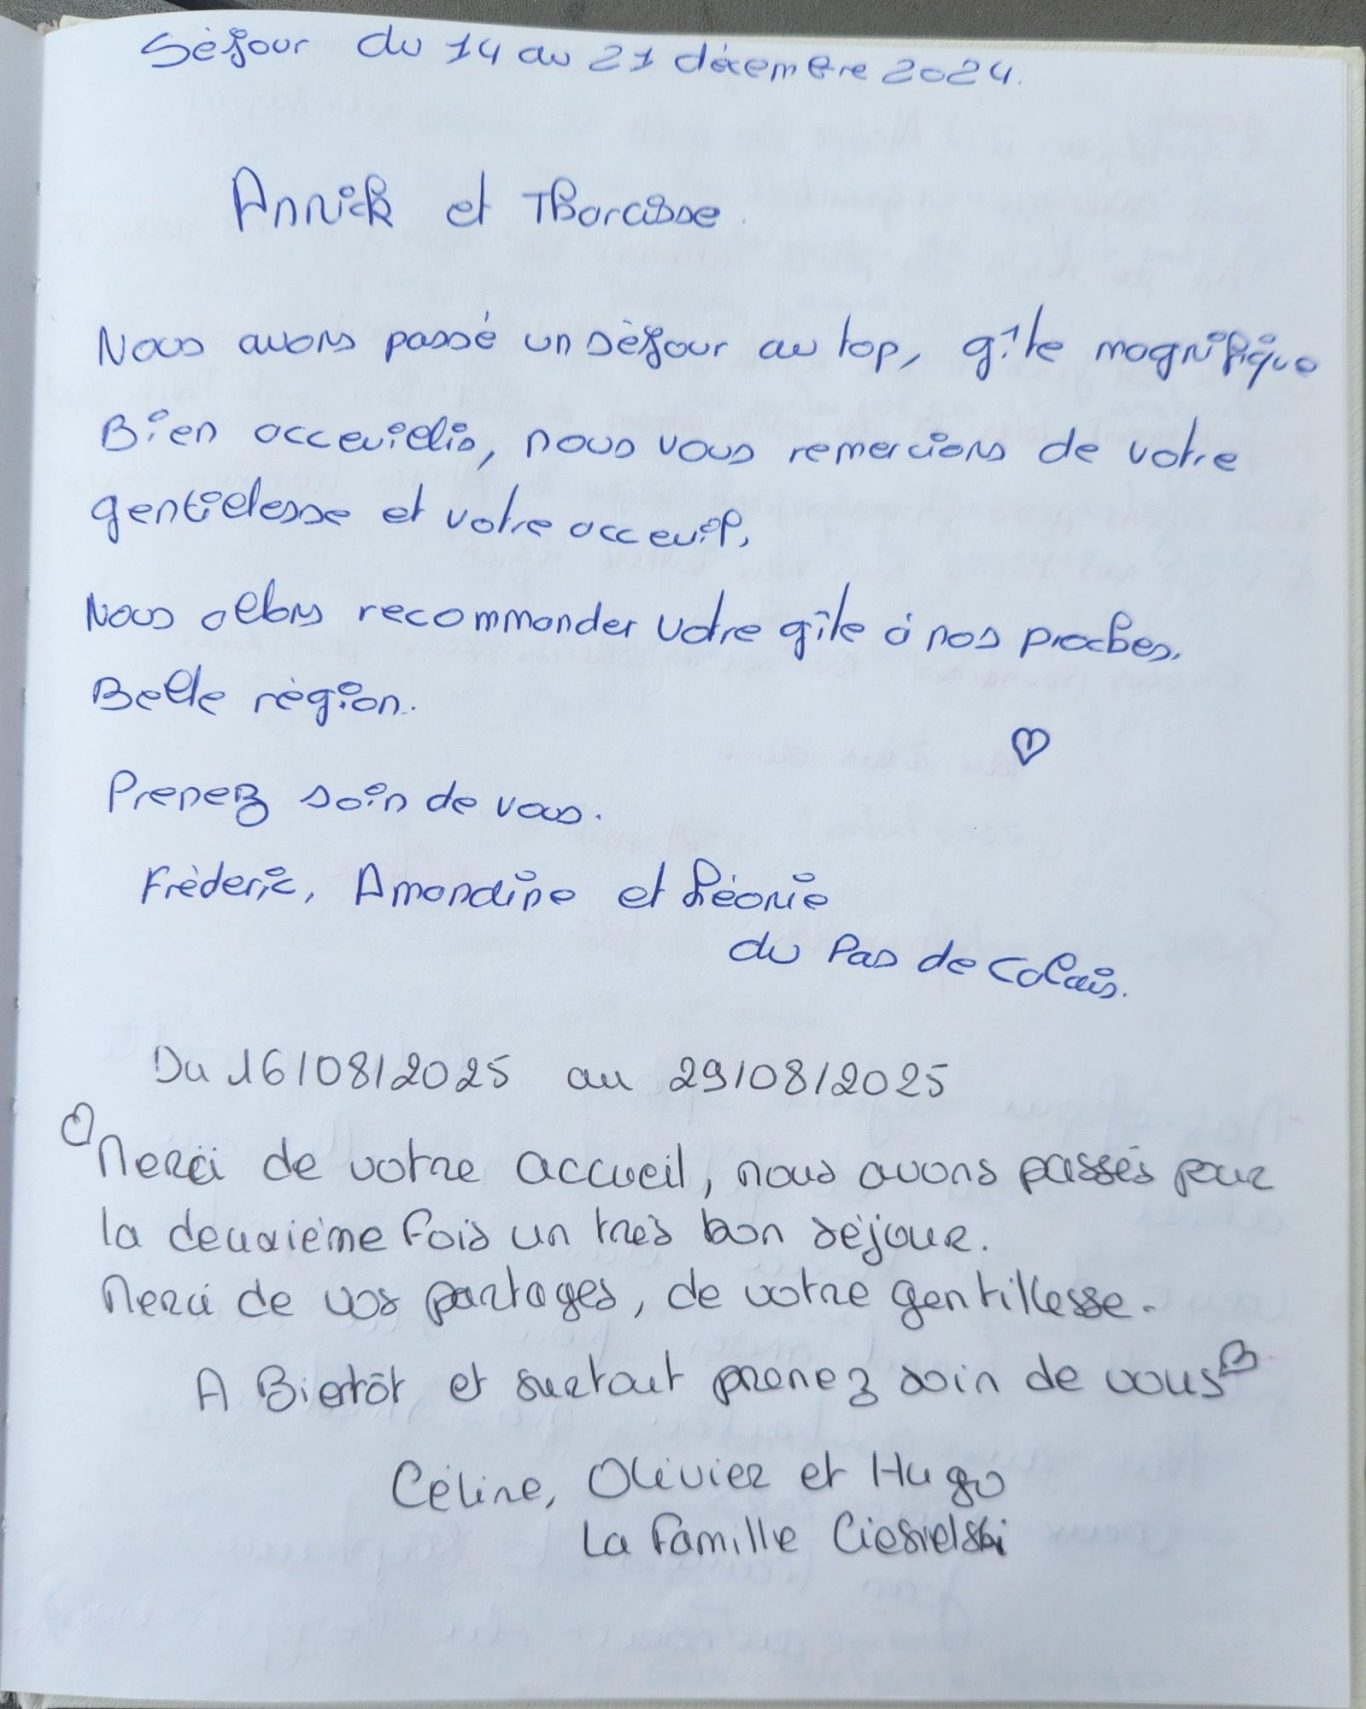 Séjour du 14 au 21 décembre 2024.
Annick et Tharcisse.
Nous avons passé un séjour au top, gîte magnifique
Bien acceuillis, nous vous remercions de votre
gentillesse et votre acceuil,
Nous allons recommander votre gîte à nos proches.
Belle région.
Prenez soin de vous.
Fréderic, Amandine et Léonie
du Pas de Calais.
Du 16/08/2025 au 29/08/2025
Merci de votre accueil, nous avons passés pour
la deuxième fois un très bon séjour.
Merci de vos partages, de votre gentillesse.
A Bientôt et surtout prenez soin de vous
Céline, Olivier et Hugo
La Famille Ciesielski